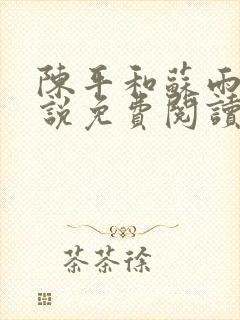 陳平和蘇雨
說免費閱讀
茶茶徐